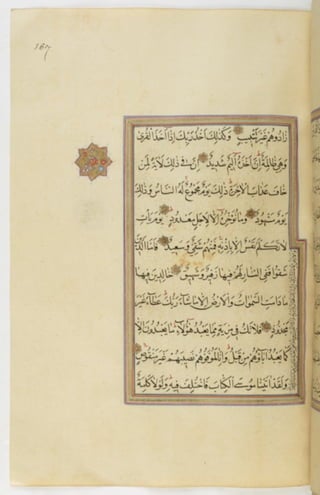 167
زادوهم غير تتبيب وكذلك اخذ ربك اذا اخذ القرى
وهي ظالمة ان اخذه اليم شديد ان في ذلك لاية لمن
خاف عذاب الاخرة ذلك يوم مجموع له الناس وذلك
يوم مشهود وما نؤخره الا لاجل معدود يوم يات
لا تكلم نفس الا باذنه فمنهم شقي وسعيد فاما الذين
شقوا ففي النار لهم فيها زفير وشهيق خالدين فيها
ما دامت السموات والارض الا ما شاء ربك عطاء غير
مجذوذ فلا تك في مرية مما يعبد هؤلاء ما يعبدون الا
كما يعبد اباؤهم من قبل وانا لموفوهم نصيبهم غير منقوص
ولقد اتينا موسى الكتاب فاختلف فيه ولولا كلمة